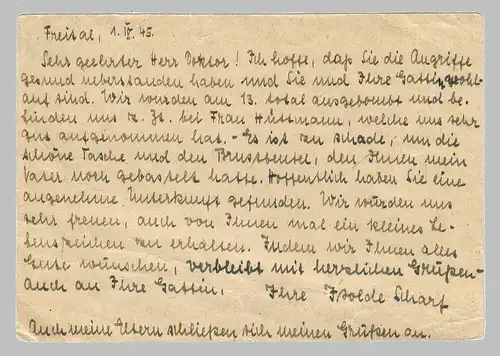 Freital, 1. IV. 45.
Sehr geehrter Herr Doktor! Ich hoffe, daß Sie die Angriffe
gesund ueberstanden haben und Sie und Ihre Gattin wohl-
auf sind. Wir wurden am 13. total ausgebombt und be-
finden uns z. Zt. bei Frau Hüttmann, welche uns sehr
gut aufgenommen hat. - Es ist zu schade, um die
schöne Tasche und den Brustbeutel, den Ihnen mein
Vater noch gebastelt hatte. Hoffentlich haben Sie eine
angenehme Unterkunft gefunden. Wir würden uns
sehr freuen, auch von Ihnen mal ein kleines Le-
benszeichen zu erhalten. Indem wir Ihnen alles
Gute wünschen, verbleibt mit herzlichen Grüßen-
auch an Ihre Gattin, Ihre Isolde Scharf
Auch meine Eltern schließen sich meinen Grüßen an.